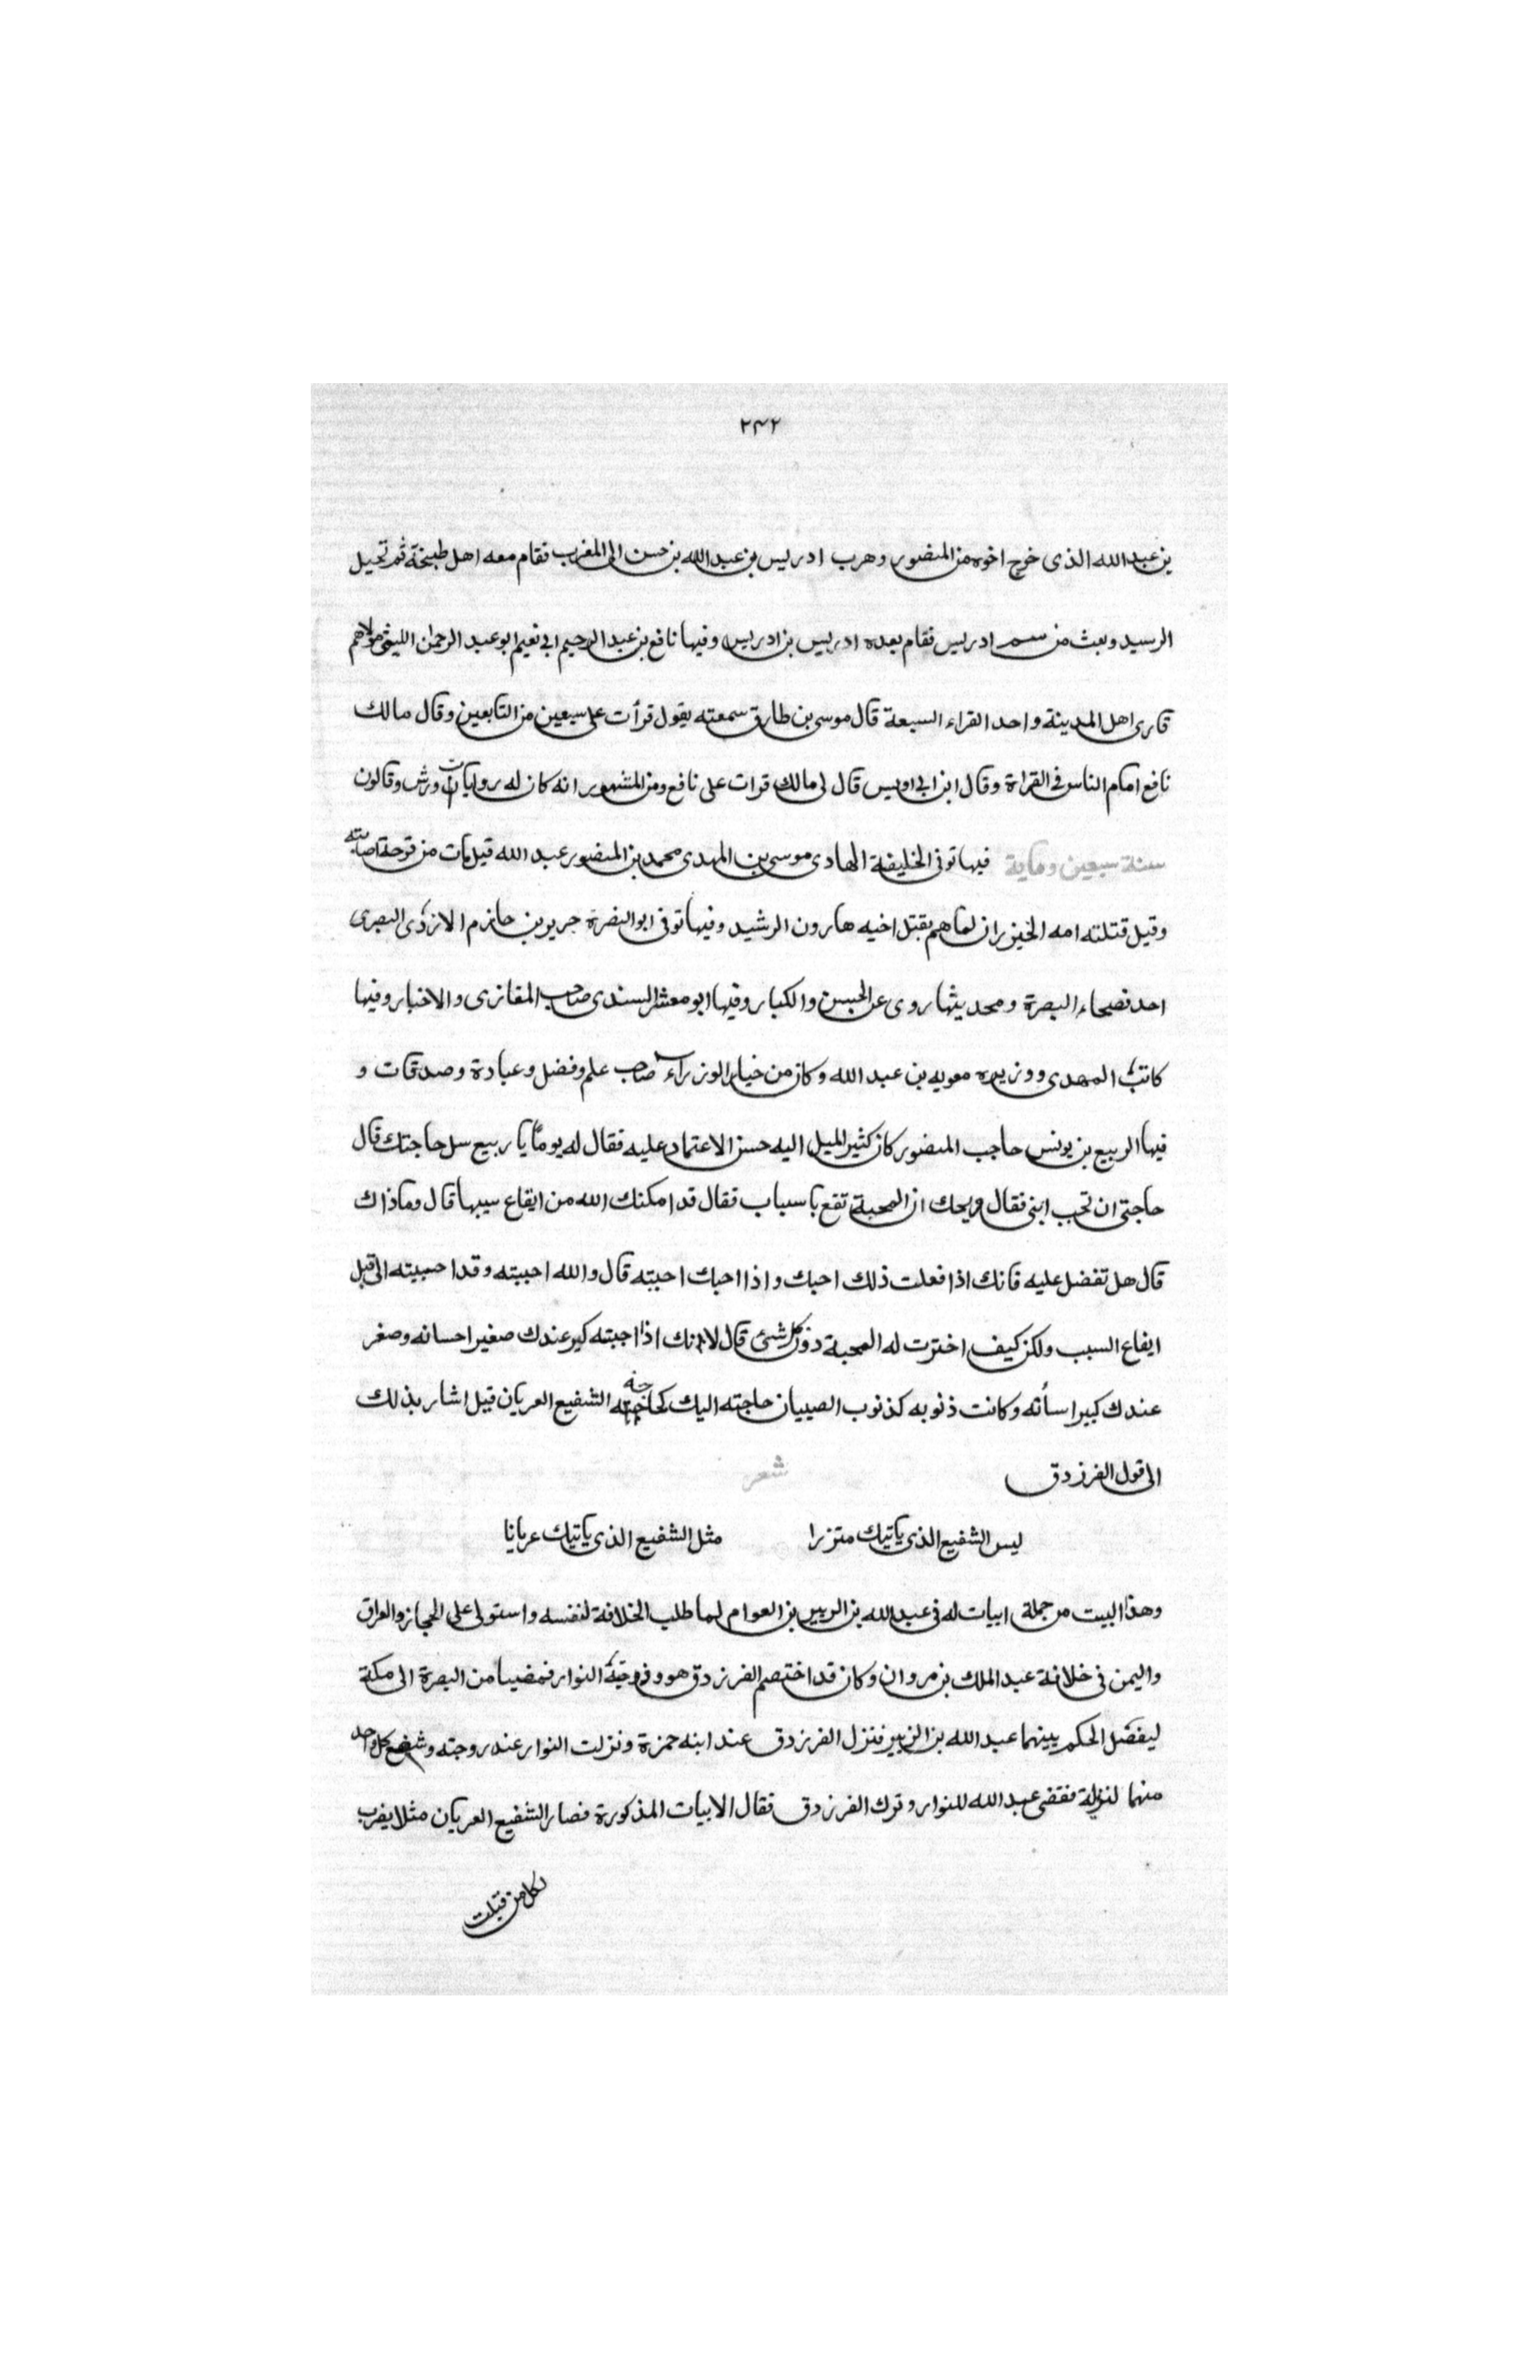 ٢٤٢
بن عبد الله الذى خرج اخوه من المنصور وهرب ادريس بن عبد الله بن حسن الى المغرب فقام معه اهل طبخة ثم تحيل
الرسيد وبعث من سم ادريس فقام بعده ادريس بن ادريس وفيها نافع بن عبد الرحيم ابى نعيم ابو عبد الرحمن الليثى مولاهم
قارى اهل المدينة واحد القراء السبعة قال موسى بن طارق سمعته يقول قرأت على سبعين من التابعين وقال مالك
نافع امام الناس فى القراة وقال ابن ابى اويس قال لى مالك قرات على نافع ومن المشهور انه كان له روايات ورش وقالون
سنة سبعين وماية فيها توفى الخليفة الهادى موسى بن المهدى محمد بن المنصور عبد الله قيل مات من قرحة اصابته
وقيل قتلته امه الخيزران لما هم بقتل اخيه هارون الرشيد وفيها توفى ابو النضرة جرير بن حازم الازدى البصرى
احد فصحاء البصرة ومحديثها روى عن الحسن والكبار وفيها ابو معشر السندى صاحب المغازى والاخبار وفيها
كاتب المهدى ووزيره معويه بن عبد الله وكان من خيار الوزراء صاحب علم وفضل وعبادة وصدقات و
فيها الربيع بن يونس حاجب المنصور كان كثير الميل اليه حسن الاعتماد عليه فقال له يوماً يا ربيع سل حاجتك قال
حاجتى ان تحب ابنى فقال ويحك ان المحبة تقع باسباب فقال قد امكنك الله من ايقاع سببها قال وماذاك
قال هل تفضل عليه فانك اذا فعلت ذلك احبك واذا احبك احببته قال والله احببته وقد احببته الى قبل
ايقاع السبب ولكن كيف اخترت له المحبة دون كل شئ قال لانك اذا احببته كبر عندك صغير احسانه وصغر
عندك كبير اسأته وكانت ذنوبه كذنوب الصبيان حاجته اليك كحاجة الشفيع العريان قيل اشار بذلك
الى قول الفرزدق شعر
ليس الشفيع الذى ياتيك متزرا مثل الشفيع الذى ياتيك عريانا
وهذا البيت من جملة ابيات له فى عبد الله بن الزبير بن العوام لما طلب الخلافة لنفسه واستولى على الحجاز والعراق
واليمن فى خلافة عبد الملك بن مروان وكان قد اختصم الفرزدق هو وزوجته النوار فمضيا من البصرة الى مكة
ليفصل الحكم بينهما عبد الله بن الزبير فنزل الفرزدق عند ابنه حمزة ونزلت النوار عند زوجته وشفع كل واحد
منهما لنزيله فقضى عبد الله للنوار وترك الفرزدق فقال الابيات المذكورة فصار الشفيع العريان مثلا يضرب
لكل من قبلت